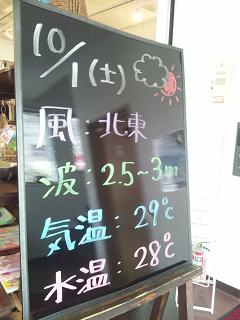 10/1(土)
風:北東
波:2.5~3m
気温:29℃
水温:28℃